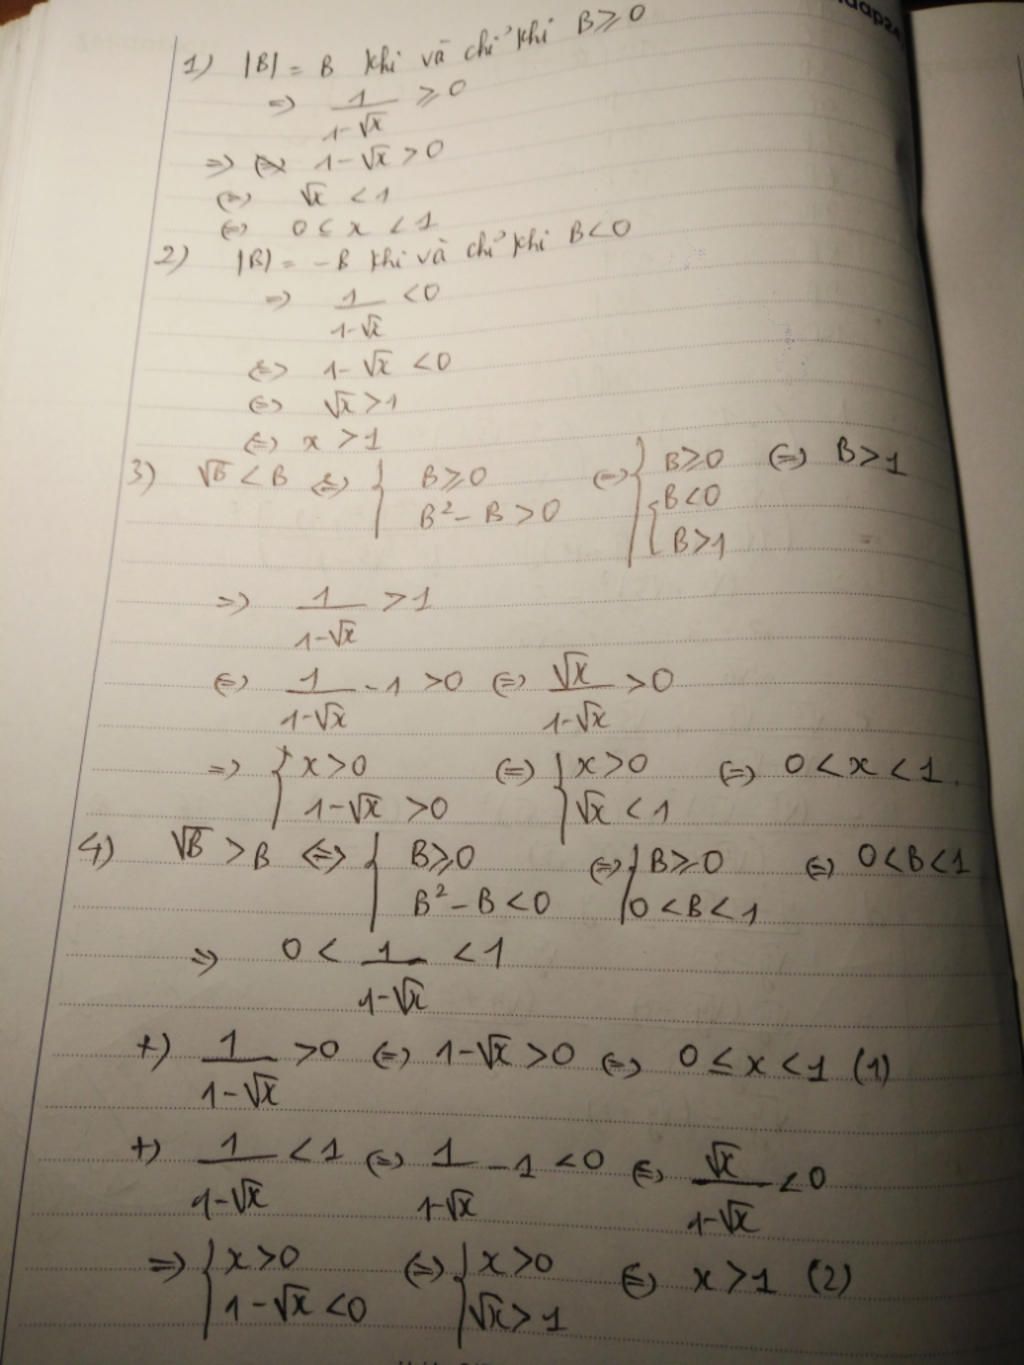 1) |B| = B khi và chỉ khi B ≥ 0
=> 1/(1-√x) ≥ 0
=> 1-√x > 0
<=> √x < 1
<=> 0 ≤ x < 1
2) |B| = -B khi và chỉ khi B < 0
=> 1/(1-√x) < 0
<=> 1-√x < 0
<=> √x > 1
<=> x > 1
3) √B < B <=> { B ≥ 0 ; B² - B > 0 <=> { B ≥ 0 ; [ B < 0 ; B > 1 <=> B > 1
=> 1/(1-√x) > 1
<=> 1/(1-√x) - 1 > 0 <=> √x/(1-√x) > 0
=> { x > 0 ; 1-√x > 0 <=> { x > 0 ; √x < 1 <=> 0 < x < 1.
4) √B > B <=> { B ≥ 0 ; B² - B < 0 <=> { B ≥ 0 ; 0 < B < 1 <=> 0 < B < 1
=> 0 < 1/(1-√x) < 1
+) 1/(1-√x) > 0 <=> 1-√x > 0 <=> 0 ≤ x < 1 (1)
+) 1/(1-√x) < 1 <=> 1/(1-√x) - 1 < 0 <=> √x/(1-√x) < 0
=> { x > 0 ; 1-√x < 0 <=> { x > 0 ; √x > 1 <=> x > 1 (2)